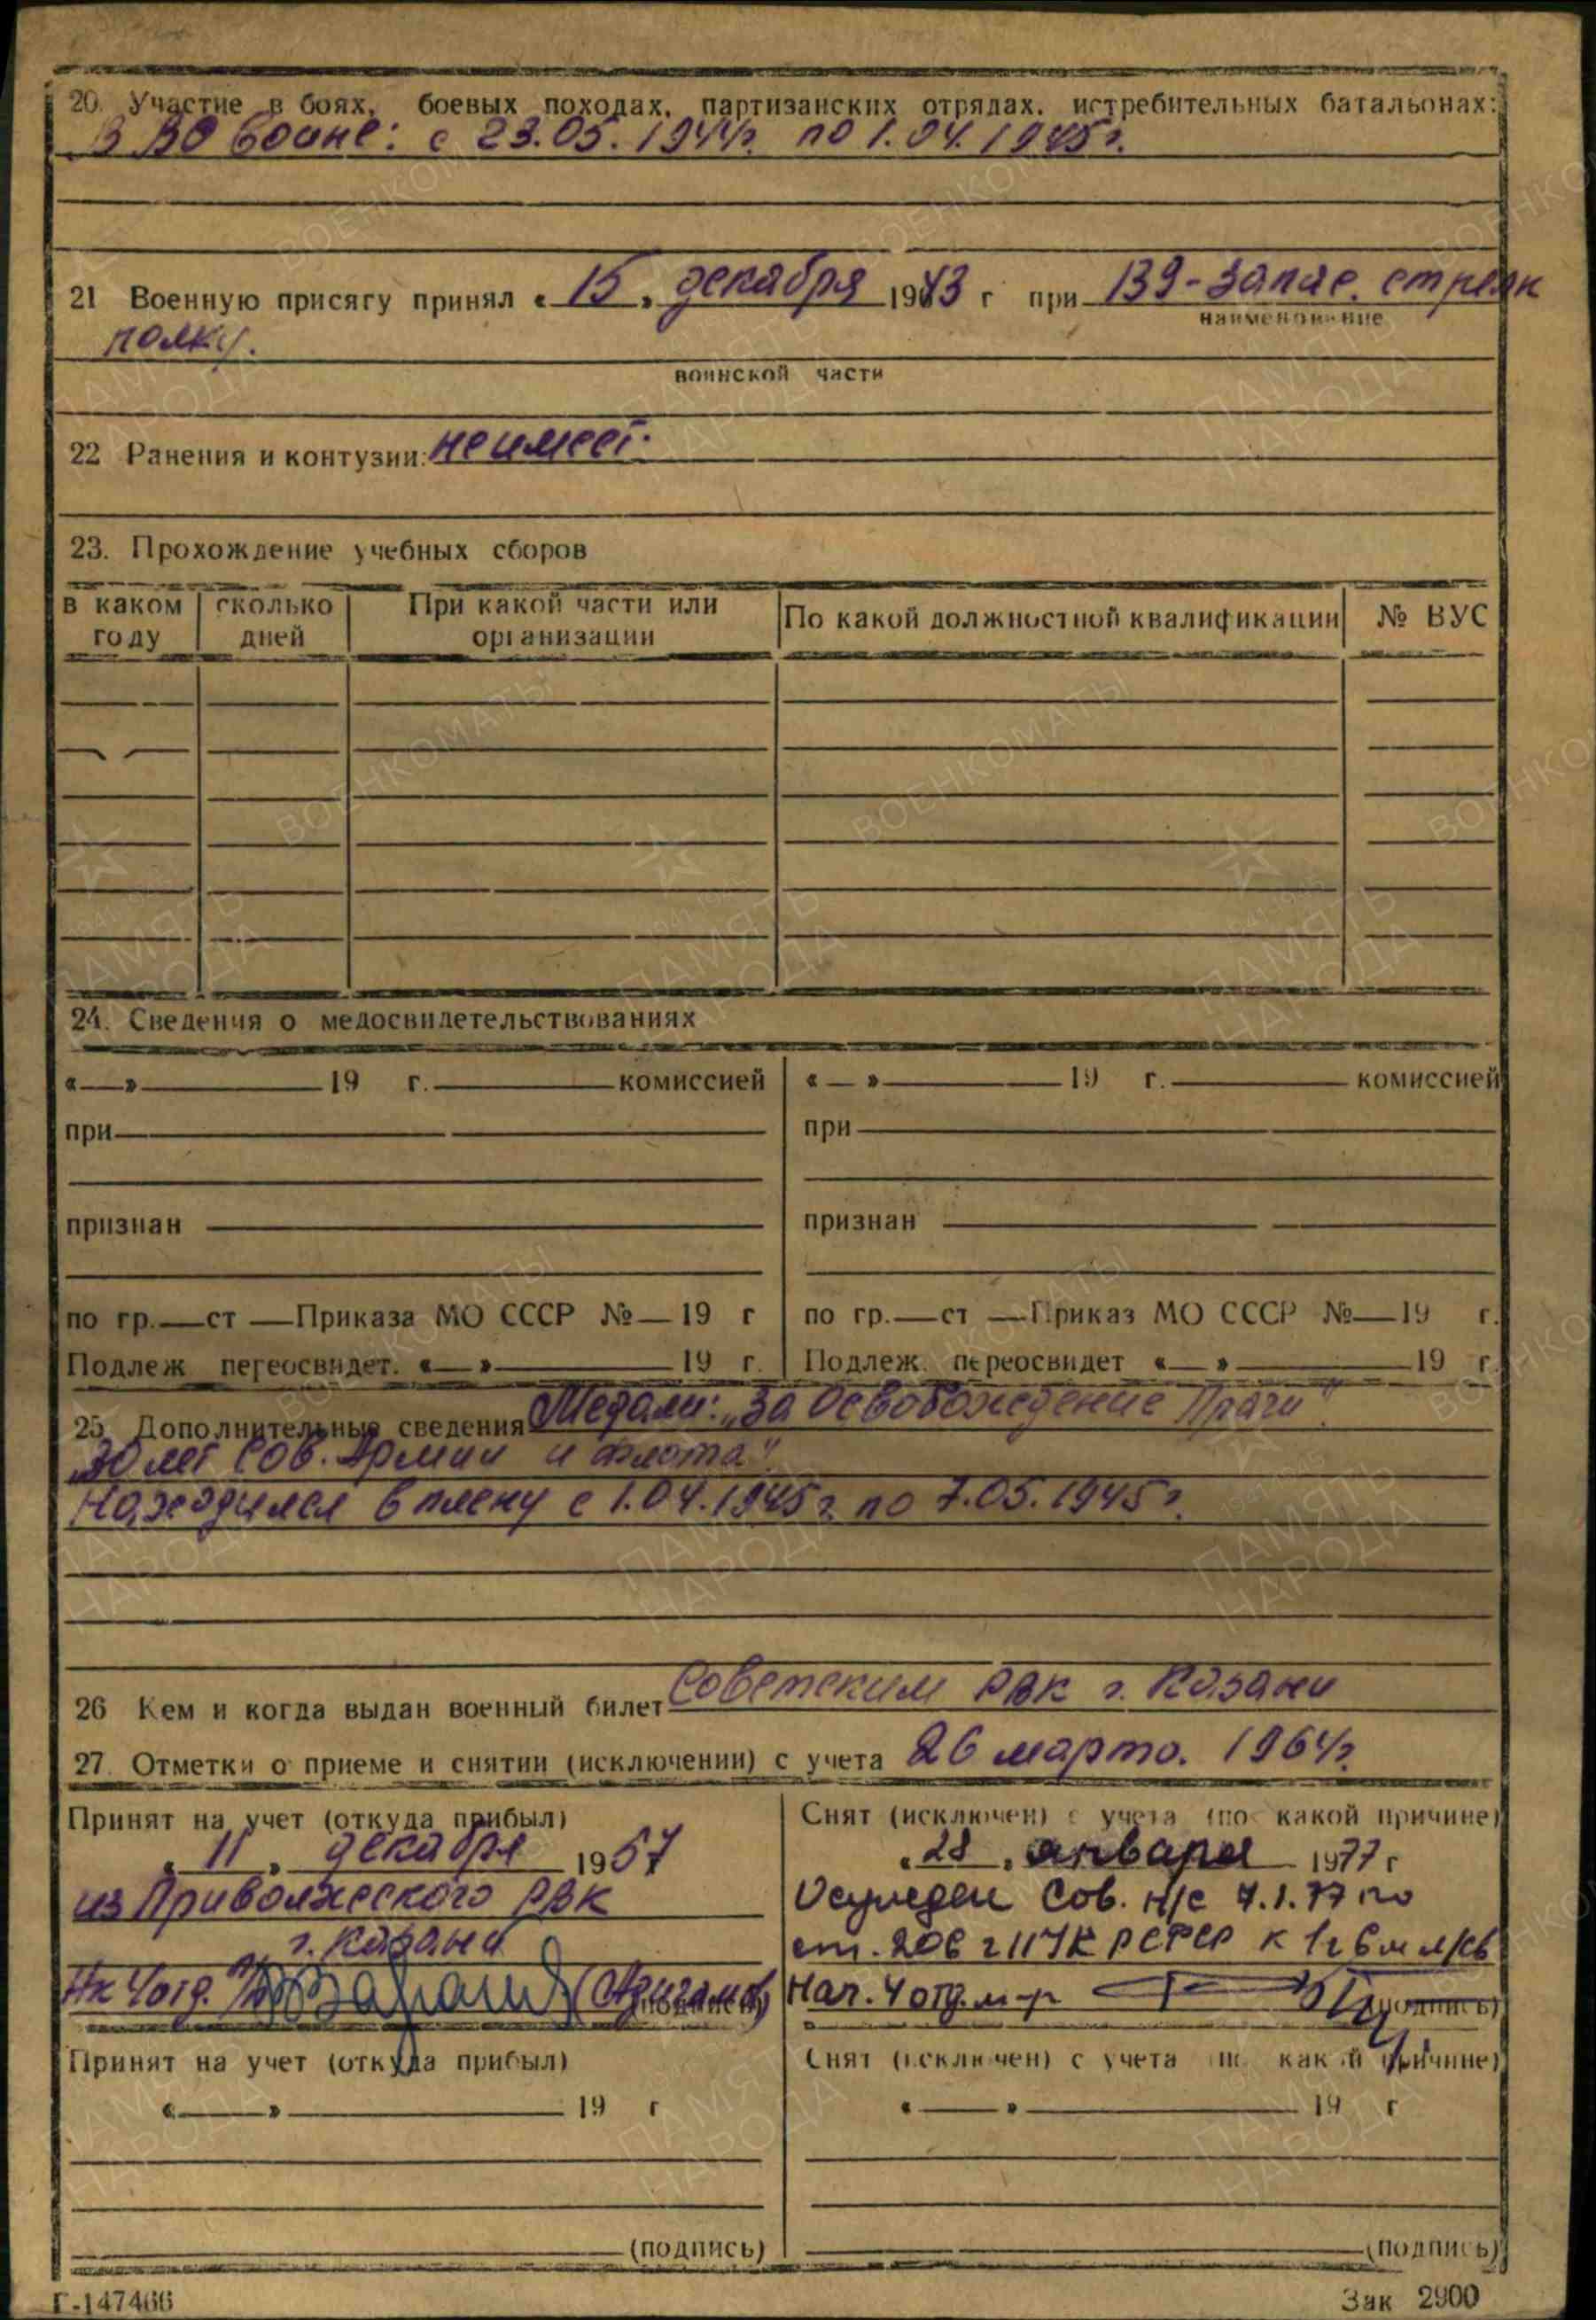 20. Участие в боях, боевых походах, партизанских отрядах, истребительных батальонах:
В ВО войне: с 23.05.1944г. по 1.04.1945г.
21 Военную присягу принял « 15 » декабря 1943 г при 139-запас. стрелк
наименование
полку.
воинской части
22 Ранения и контузии: не имеет.
23. Прохождение учебных сборов
в каком году сколько дней При какой части или организации По какой должностной квалификации № ВУС
24. Сведения о медосвидетельствованиях
«—» 19 г. комиссией «—» 19 г. комиссией
при при
признан признан
по гр.—ст —Приказа МО СССР №—19 г по гр.—ст —Приказ МО СССР №—19 г.
Подлеж переосвидет. «—» 19 г. Подлеж. переосвидет «—» 19 г.
25. Дополнительные сведения Медали: „За Освобождение Праги".
„30 лет Сов. Армии и Флота"
Находился в плену с 1.04.1945г. по 7.05.1945г.
26 Кем и когда выдан военный билет Советским РВК г. Казани
27. Отметки о приеме и снятии (исключении) с учета 26 марта. 1964г.
Принят на учет (откуда прибыл) Снят (исключен) с учета (по какой причине)
« 11 » декабря 1967 « 28 » января 1977 г
из Приволжского РВК Осужден Сов. н/с 7.1.77 по
г. Казани ст. 206 г II УК РСФСР к 1г 6м л/св
Нк 4 отд. (Азигамов) (подпись) Нач. 4 отд. м-р (подпись)
Принят на учет (откуда прибыл) Снят (исключен) с учета (по какой причине)
«—» 19 г «—» 19 г
(подпись) (подпись)
Г-147466 Зак 2900
ВОЕНКОМАТЫ
ПАМЯТЬ НАРОДА
1941-1945